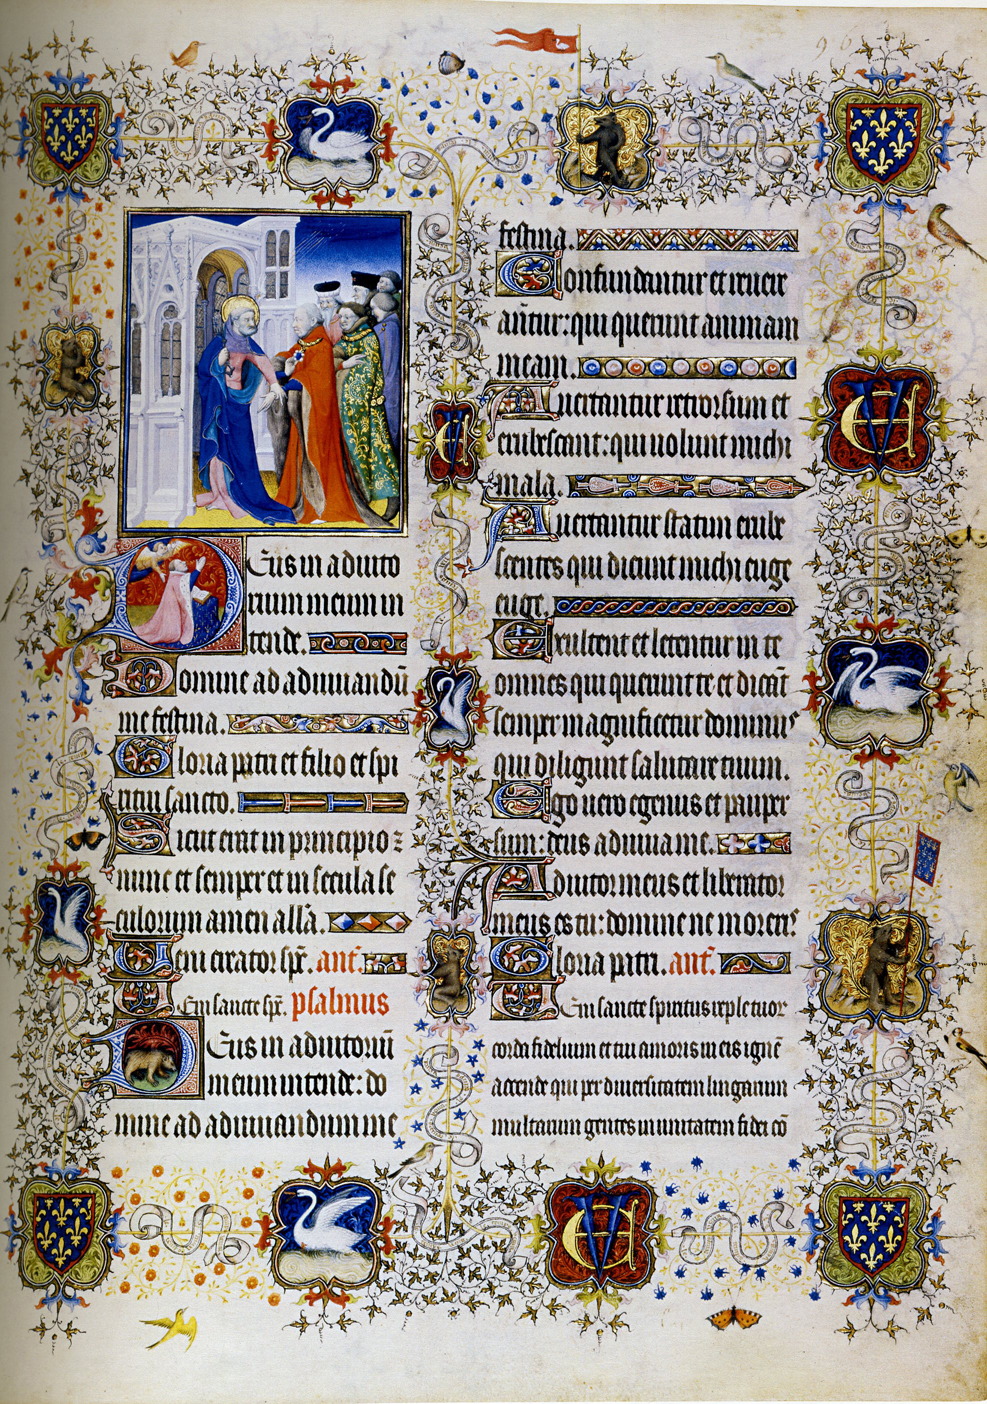 Deus in adiuto
rium meum in
tende.
Domine ad adiuuandū
me festina.
Gloria patri et filio et spi
ritui sancto.
Sicut erat in principio ⁊
nunc et semper et in secula se
culorum amen allā.
ant̄.
Ueni sancte sp̄.
psalmus
Deus in adiutoriū
meum intende: do
mine ad adiuuandum me
festina.
Confundantur et reuer
ātur: qui querunt animam
meam.
Auertantur retrorsum et
erubescant: qui uolunt michi
mala.
Auertantur statim erube
scentes qui dicunt michi euge
euge.
Exultent et letentur in te
omnes qui querunt te et dicāt
semper magnificetur dominus
qui diligunt salutare tuum.
Ego uero egenus et pauper
sum: deus adiuua me.
Adiutor meus et liberator
meus es tu: domine ne moreris
Gloria patri. ant̄.
Ueni sancte spiritus reple tuor
corda fidelium et tui amoris in eis ignē
accende qui per diuersitatem linguarum
multarum gentes in unitatem fidei cō